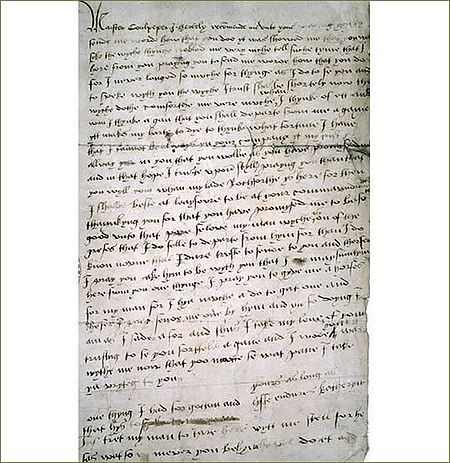 Master Coulpeper I hertely recomend me unto youe praying you to
sende me worde how that you doo yt was showed me that you was
sike the wyche thynge trobled me very muche tell suche tyme that I
here from you praying you to send me worde how that you do
for I never longed so muche for thynge as I do to se you and
to speke wyth you the wyche I trust shal be shortely now the
wyche dothe comforthe me verie muche whan I thynke of ett and
wan I thynke agan that you shall departe from me agane
ytt makes my harte to dye to thynke what fortune I have
that I cannot be always yn your company yt my trust ys
allway in you that you wolbe as you have
and in that hope I truste upon styll praying you than that
you wyll com whan my lade Rochforthe ys here for then
I shalbe beste at leaysoure to be at your
thankyng you for that you have promysed me to be so
good unto that pore felowe my man wyche is on of the
grefes that I do felle to departe from hym for than I do
know noone that I dare truste to sende to you and therfor
I pray you take hym to be wyth you that I may sumtym
here from you one thynge I pray you to gyve me a horse
for my man for I hyd muche a do to gat one and
thefer I pray sende me one by hym and yn so doying I
am as I sade afor and thus I take my leve of you
trusting to se you shorttele agane and I wode you was
wythe me now that you se what pane I take
yn wryting to you
yours as long as
lyffe endures Katheryn
one thyng I had forgotten and
that hys to
my man to tare here wyt me still for he
sas wat so mever you bed do et and